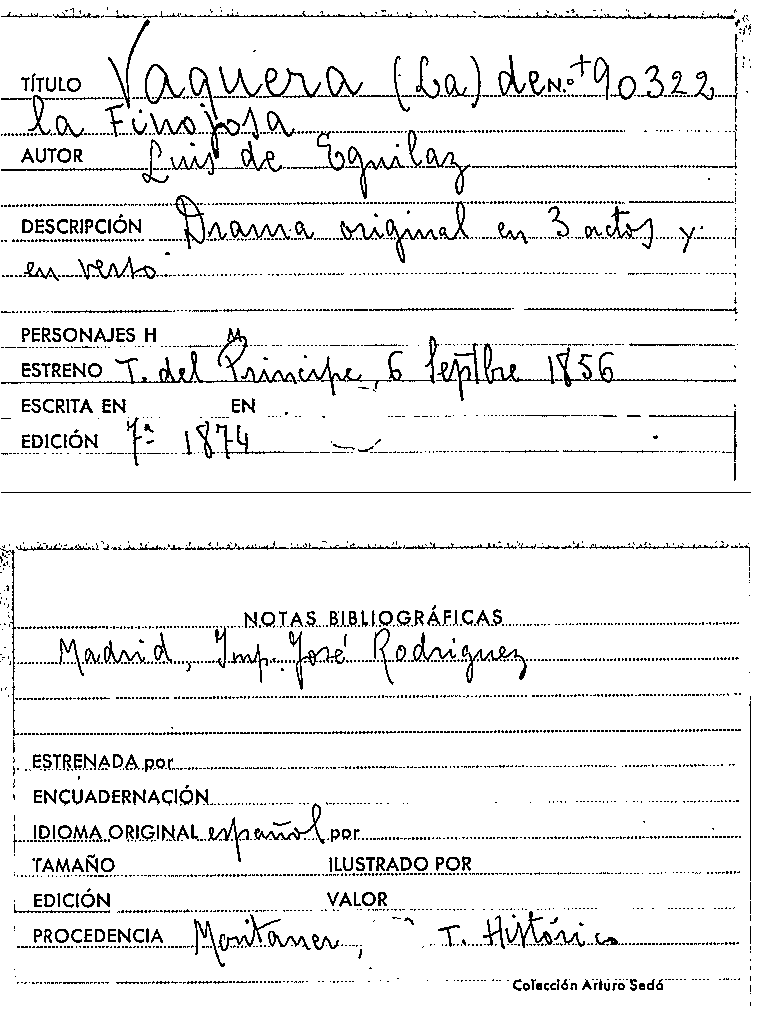 TÍTULO Vaquera (La) de N.º +90322
la Finojosa
AUTOR Luis de Eguilaz
DESCRIPCIÓN Drama original en 3 actos y
en verso
PERSONAJES H M
ESTRENO T. del Principe, 6 Septbre 1856
ESCRITA EN EN
EDICIÓN 7ª 1874
NOTAS BIBLIOGRÁFICAS
Madrid, Imp. José Rodriguez
ESTRENADA por
ENCUADERNACIÓN
IDIOMA ORIGINAL español por
TAMAÑO ILUSTRADO POR
EDICIÓN VALOR
PROCEDENCIA Montaner, T. Histórico
Colección Arturo Sedó